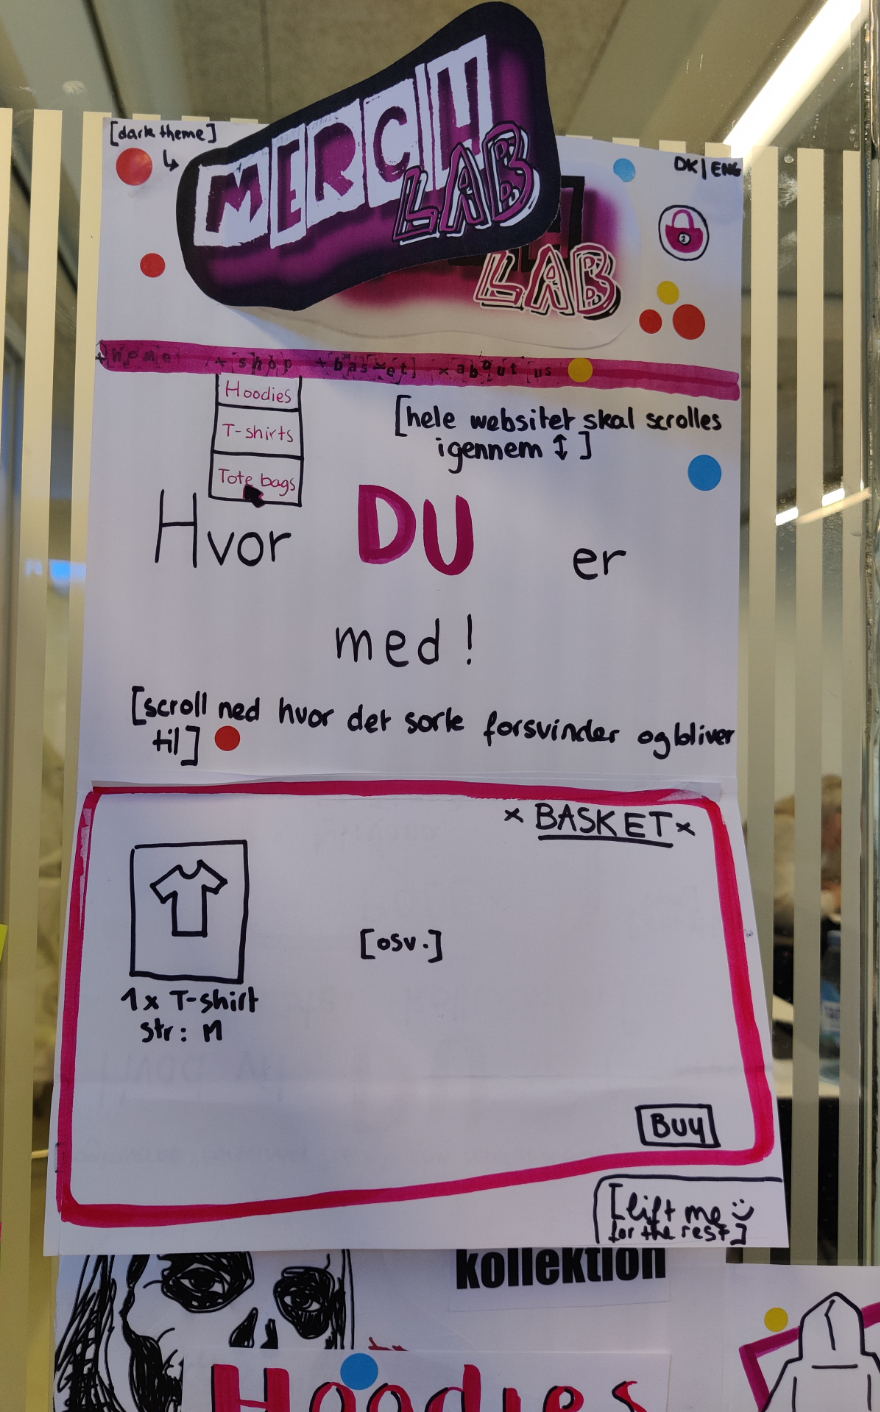 [dark theme]
MERCH
LAB
LAB
DK | ENG
2
+[home] +[shop] +[basket] x about us
Hoodies
T-shirts
Tote bags
[hele websitet skal scrolles
igennem ↕]
Hvor DU er
med!
[scroll ned hvor det sorte forsvinder og bliver
til]
x BASKET x
1 x T-shirt
str: M
[osv.]
Buy
[lift me
for the rest]
kollektion
Hoodies